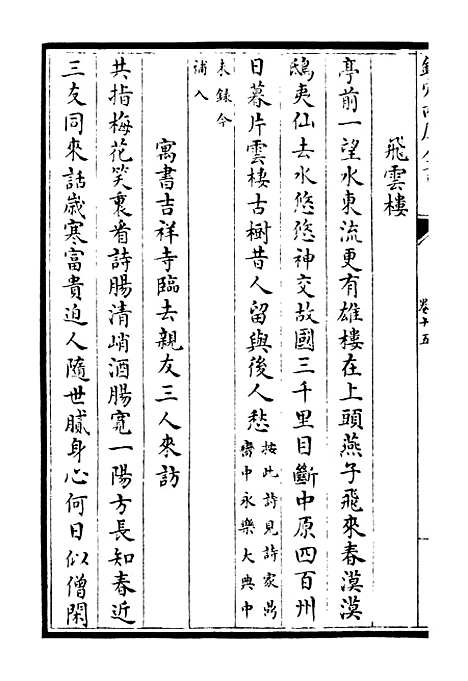 飛雲樓
亭前一望水東流更有雄樓在上頭燕子飛來春漠漠
鴟夷仙去水悠悠神交故國三千里目斷中原四百州
日暮片雲棲古樹昔人留與後人愁按此詩見詩家鼎
臠中永樂大典中
未錄今
補入
寓書吉祥寺臨去親友三人來訪
共指梅花笑裏看詩腸清峭酒腸寬一陽方長知春近
三友同來話歲寒富貴迫人隨世膩身心何日似僧閑
卷十五